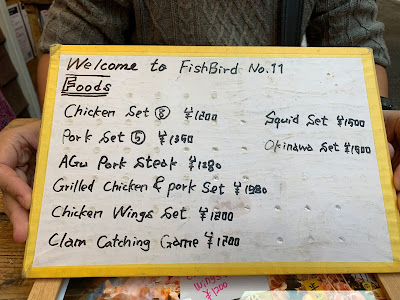 Welcome to FishBird No.11
Foods
Chicken Set ⑧ ¥1200
Pork Set ⑤ ¥1350
AGu Pork Steak ¥1280
Grilled Chicken & pork Set ¥1980
Chicken Wings Set ¥1200
Clam Catching Game ¥1700
Squid Set ¥1500
Okinawa Set ¥1500
Wings
¥1200